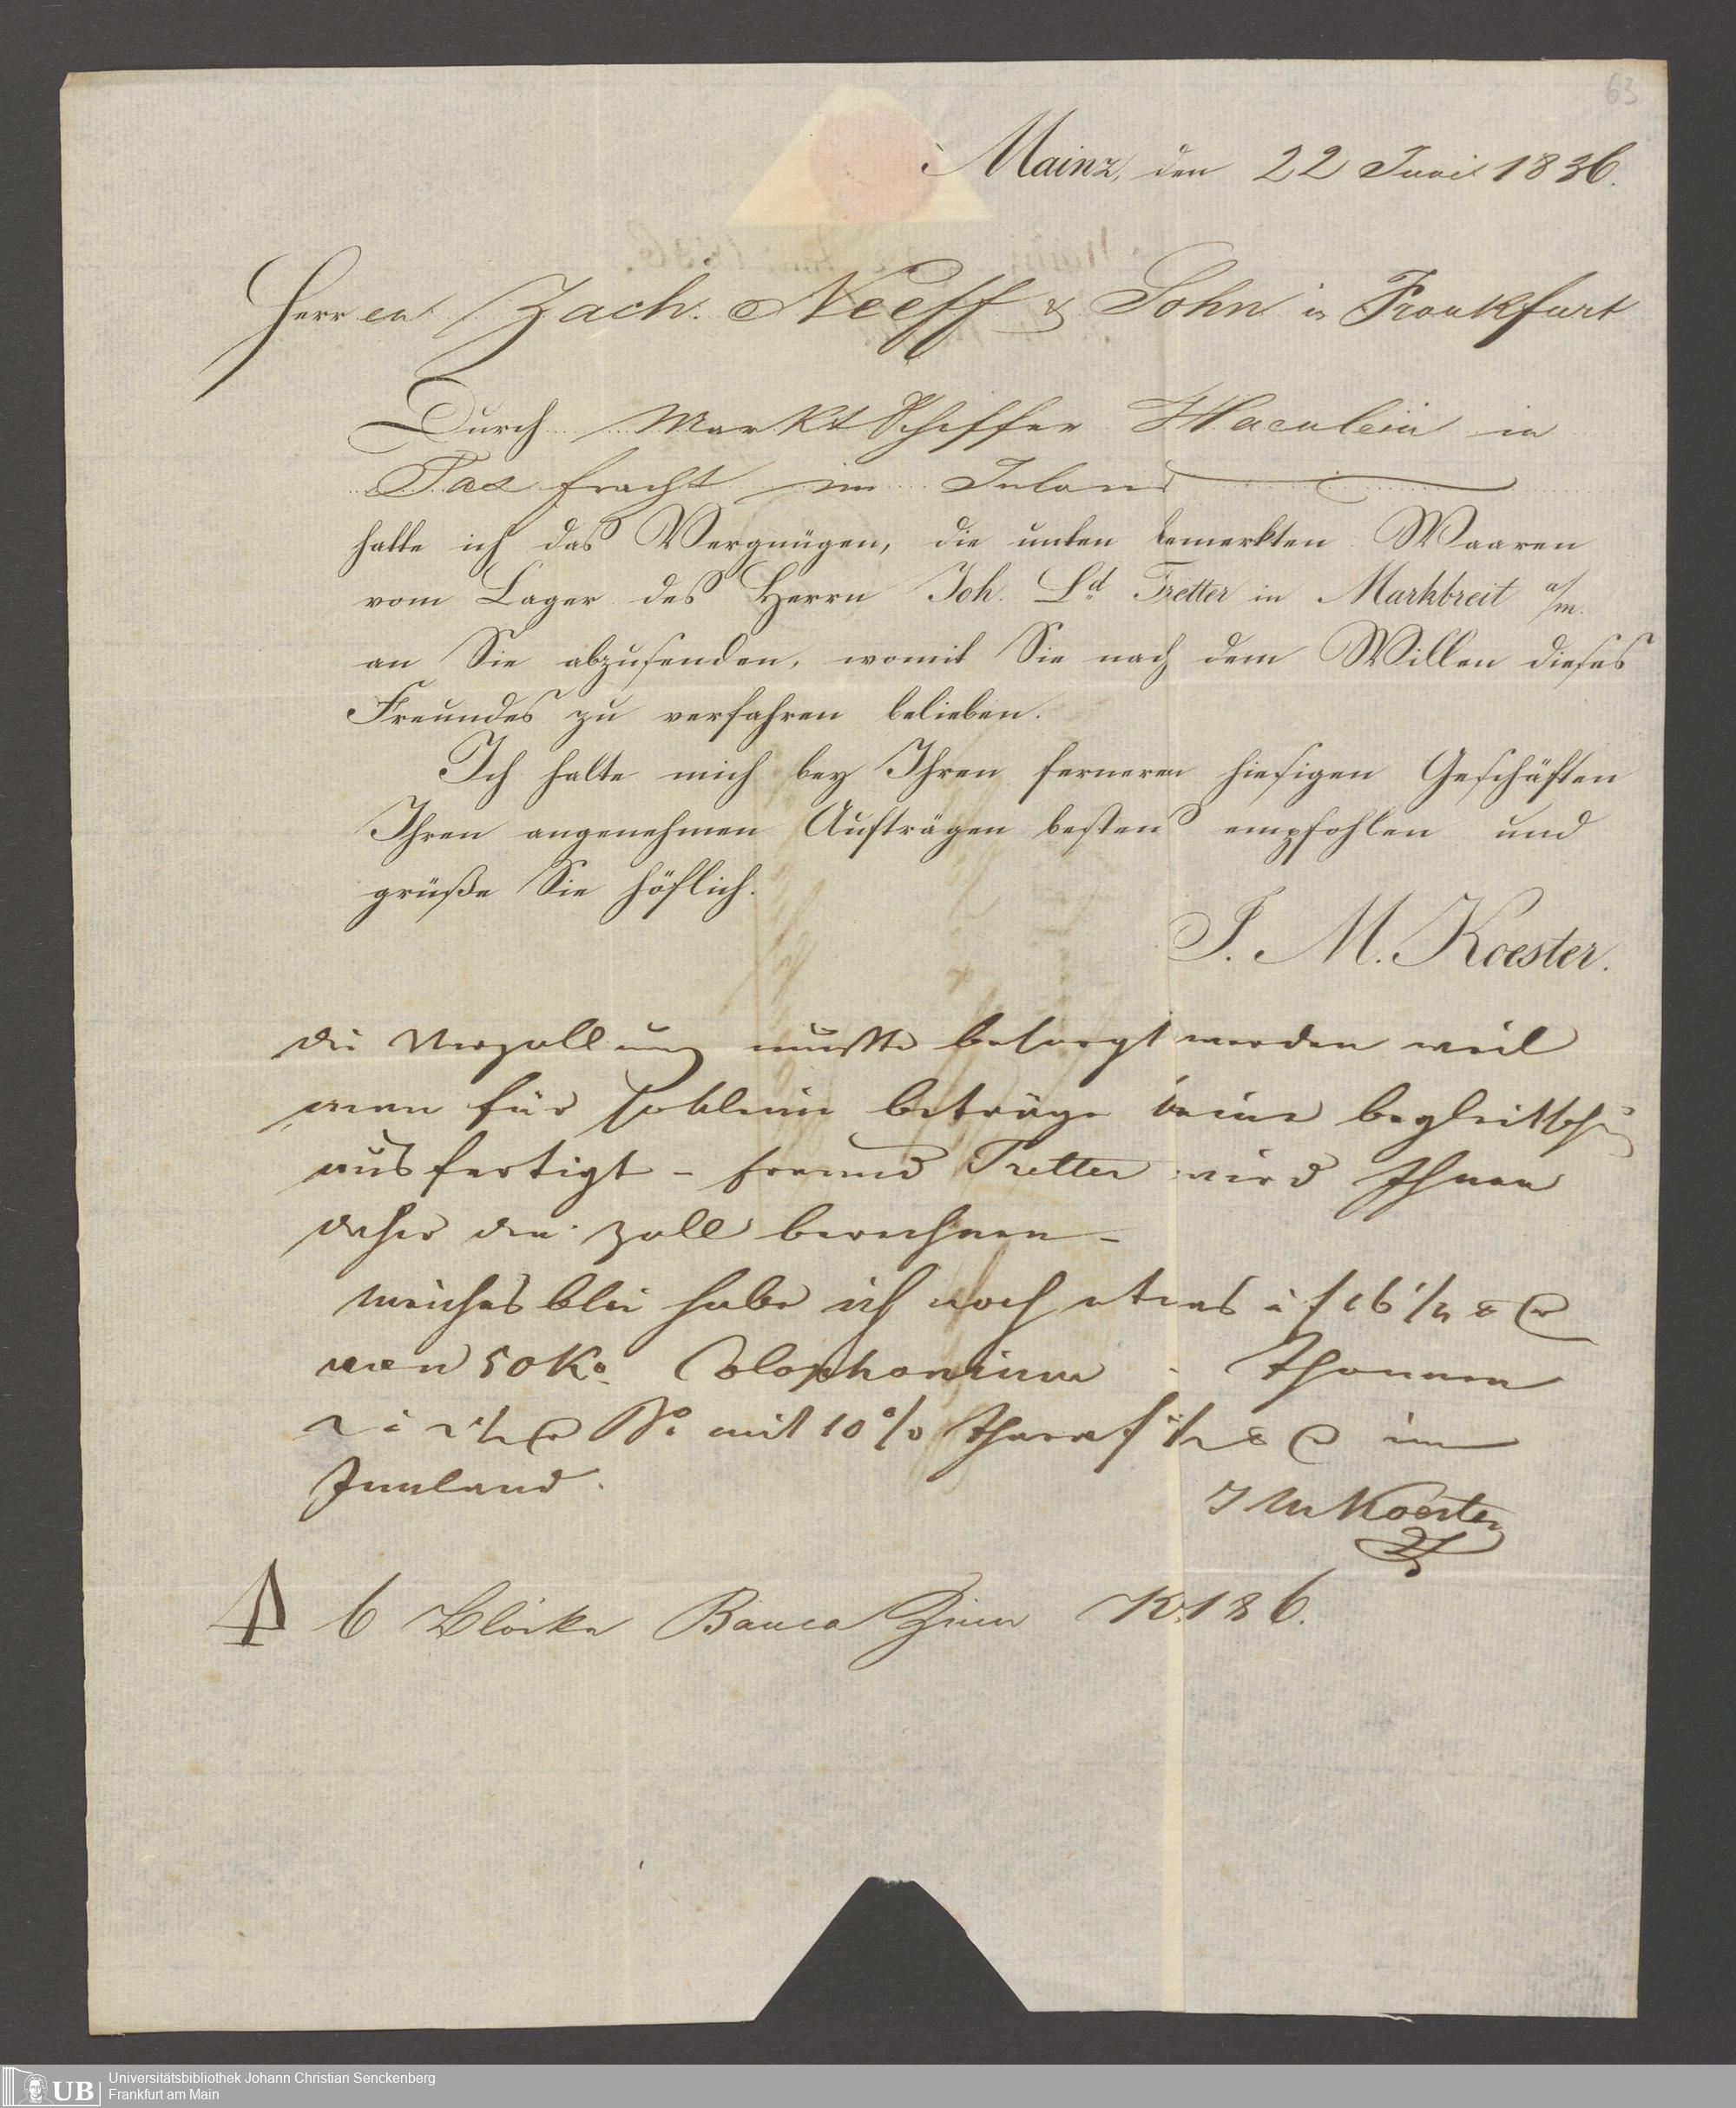 63
Mainz, den 22 Juni 1836.
Herren Zach. Neeff & Sohn in Frankfurt
Durch Marktschiffer Haenlein in
Tax fracht im Inland
hatte ich das Vergnügen, die unten bemerkten Waaren
vom Lager des Herrn Joh. Ld Tretter in Marktbreit a/m.
an Sie abzusenden, womit Sie nach dem Willen dieses
Freundes zu verfahren belieben.
Ich halte mich bey Ihren ferneren hiesigen Geschäften
Ihren angenehmen Aufträgen bestens empfohlen und
grüße Sie höflich.
J. M. Koester.
die Verzollung mußte besorgt werden weil
man für so kleine beträge keine begleitsch
ausfertigt – freund Tretter wird Ihnen
daher den Zoll berechnen –
weiches blei habe ich noch etwas
50 Ko Colophonium
mit 10 % im
Innland.
J M Koester
6 Blöcke Banca Zinn Ko 186.
UB
Universitätsbibliothek Johann Christian Senckenberg
Frankfurt am Main